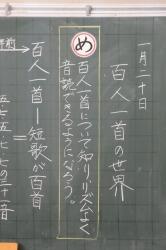 一月二十日
百人一首の世界
め
百人一首について知り、リズムよく
音読できるようになろう。
百人一首＝短歌が百首
五七五七七の三十一音